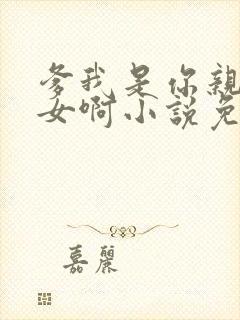 爹我是你親
女啊小說免
嘉麗